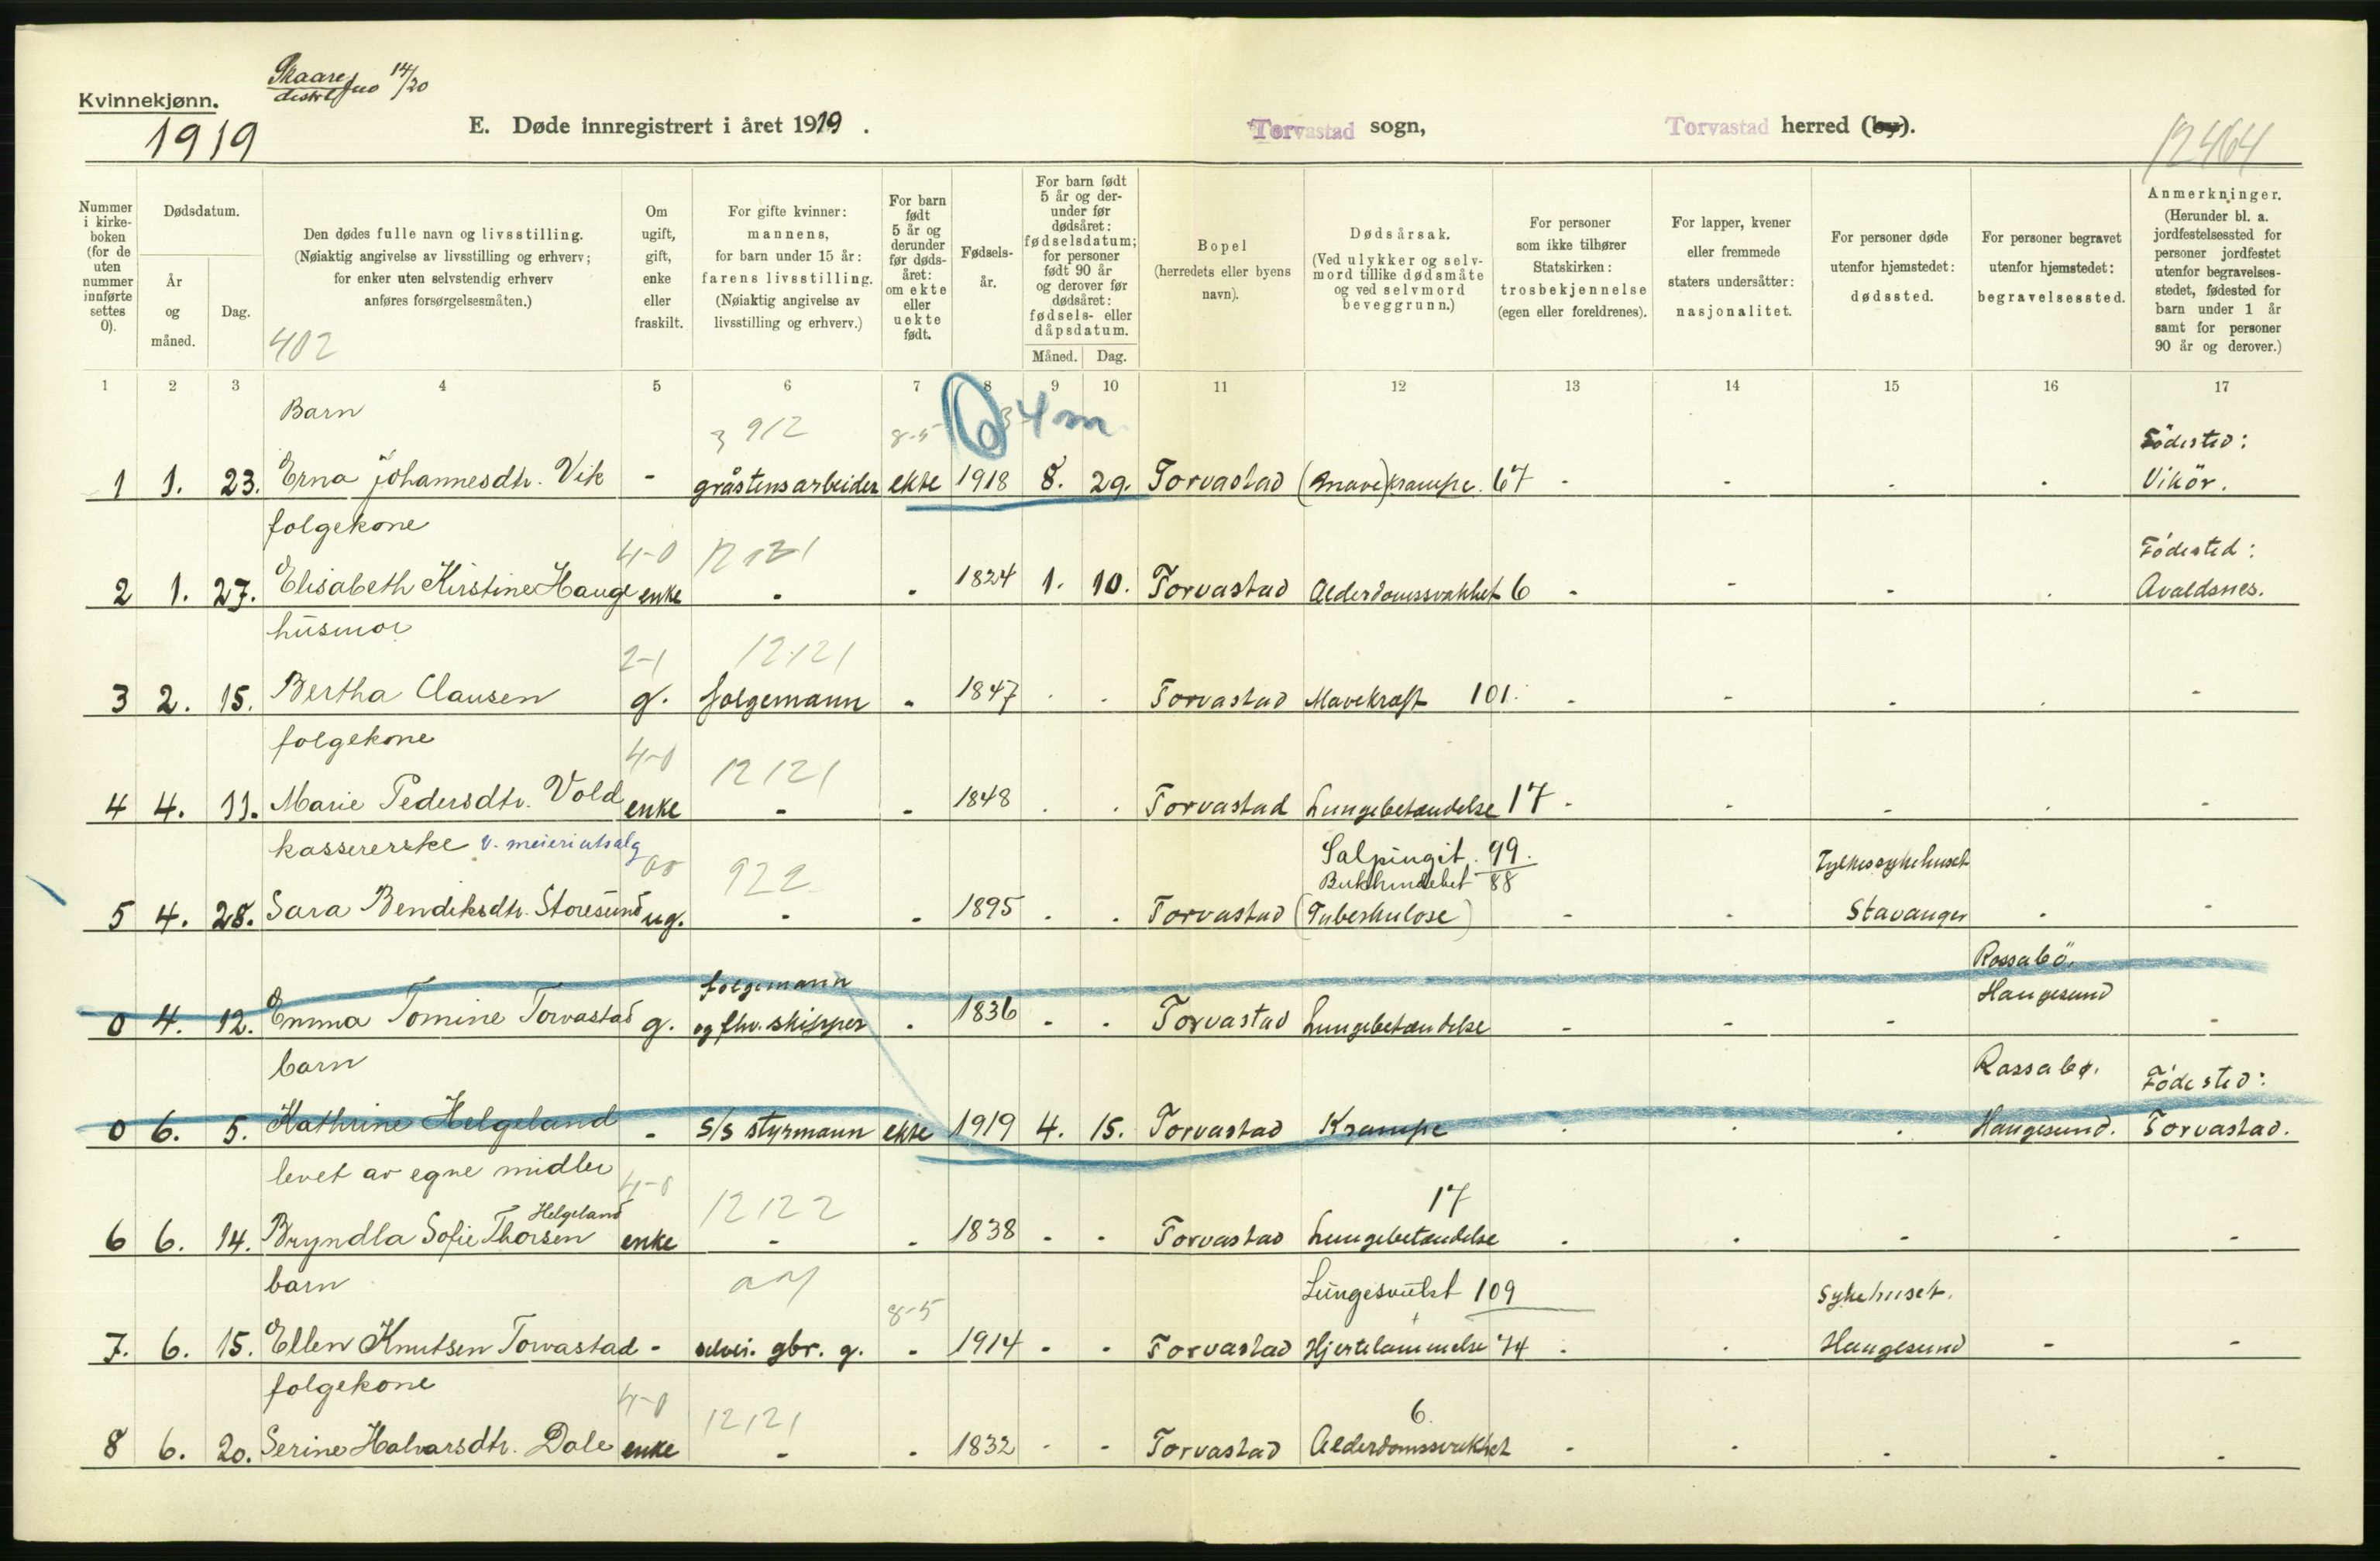 Skaare 14/20
Kvinnekjønn.
1919
E. Døde innregistrert i året 1919.
Torvastad sogn,
Torvastad herred (by).
12464
Nummer i kirkeboken (for de uten nummer innførte settes 0).
Dødsdatum.
År og måned.
Dag.
Den dødes fulle navn og livsstilling.
(Nøiaktig angivelse av livsstilling og erhverv; for enker uten selvstendig erhverv anføres forsørgelsesmåten.)
402
Om ugift, gift, enke eller fraskilt.
For gifte kvinner: mannens, for barn under 15 år: farens livsstilling.
(Nøiaktig angivelse av livsstilling og erhverv.)
For barn født 5 år og derunder før dødsåret: om ekte eller uekte født.
Fødselsår.
For barn født 5 år og derunder før dødsåret: fødselsdatum; for personer født 90 år og derover før dødsåret: fødsels- eller dåpsdatum.
Måned. Dag.
Bopel (herredets eller byens navn).
Dødsårsak.
(Ved ulykker og selvmord tillike dødsmåte og ved selvmord beveggrunn.)
For personer som ikke tilhører Statskirken: trosbekjennelse (egen eller foreldrenes).
For lapper, kvener eller fremmede staters undersåtter: nasjonalitet.
For personer døde utenfor hjemstedet: dødssted.
For personer begravet utenfor hjemstedet: begravelsessted.
Anmerkninger.
(Herunder bl. a. jordfestelsessted for personer jordfestet utenfor begravelsesstedet, fødested for barn under 1 år samt for personer 90 år og derover.)
1 2 3 4 5 6 7 8 9 10 11 12 13 14 15 16 17
Barn 3 912 8-5 4 m Födested:
1 1. 23. Erna Johannesdtr. Vik - gråstensarbeider ekte 1918 8. 29. Torvastad (Mave)krampe. 67 - - - - Vikör.
folgekone 4-0 12 121 Födested:
2 1. 27. Elisabeth Kirstine Hauge enke - - 1824 1. 10. Torvastad Alderdomssvakhet 6 - - - - Avaldsnes.
husmor 2-1 12121
3 2. 15. Bertha Clausen g. folgemann - 1847 - - Torvastad Mavekræft 101. - - - - -
folgekone 4-0 12121
4 4. 11. Marie Pedersdtr. Vold enke - - 1848 - - Torvastad Lungebetændelse 17 - - - - -
kassererske v. meieriutsalg 922 Salpingit. 99. Fylkessykehuset
Bukhindebet 88
5 4. 28. Sara Bendiksdtr. Storesund ug. - - 1895 - - Torvastad (Tuberkulose) - - Stavanger - -
folgemann Rossabö.
0 4. 12. Emma Tomine Torvastad g. og fhv. skipper - 1836 - - Torvastad Lungebetændelse - - - Haugesund -
barn Rossabø. Födested:
0 6. 5. Kathrine Helgeland - s/s styrmann ekte 1919 4. 15. Torvastad Krampe - - - Haugesund. Torvastad.
levet av egne midler 4-0 12122 17
Helgeland
6 6. 14. Bryndla Sofie Thorsen enke - - 1838 - - Torvastad Lungebetændelse - - - - -
barn 8-5 Lungesvulst 109 Sykehuset.
7. 6. 15. Ellen Knutsen Torvastad - selvei. gbr. g. - 1914 - - Torvastad Hjertelammelse - - Haugesund - -
folgekone 4-0 12121 6.
8 6. 20. Serine Halvarsdtr. Dale enke - - 1832 - - Torvastad Alderdomssvakhet - - - - -